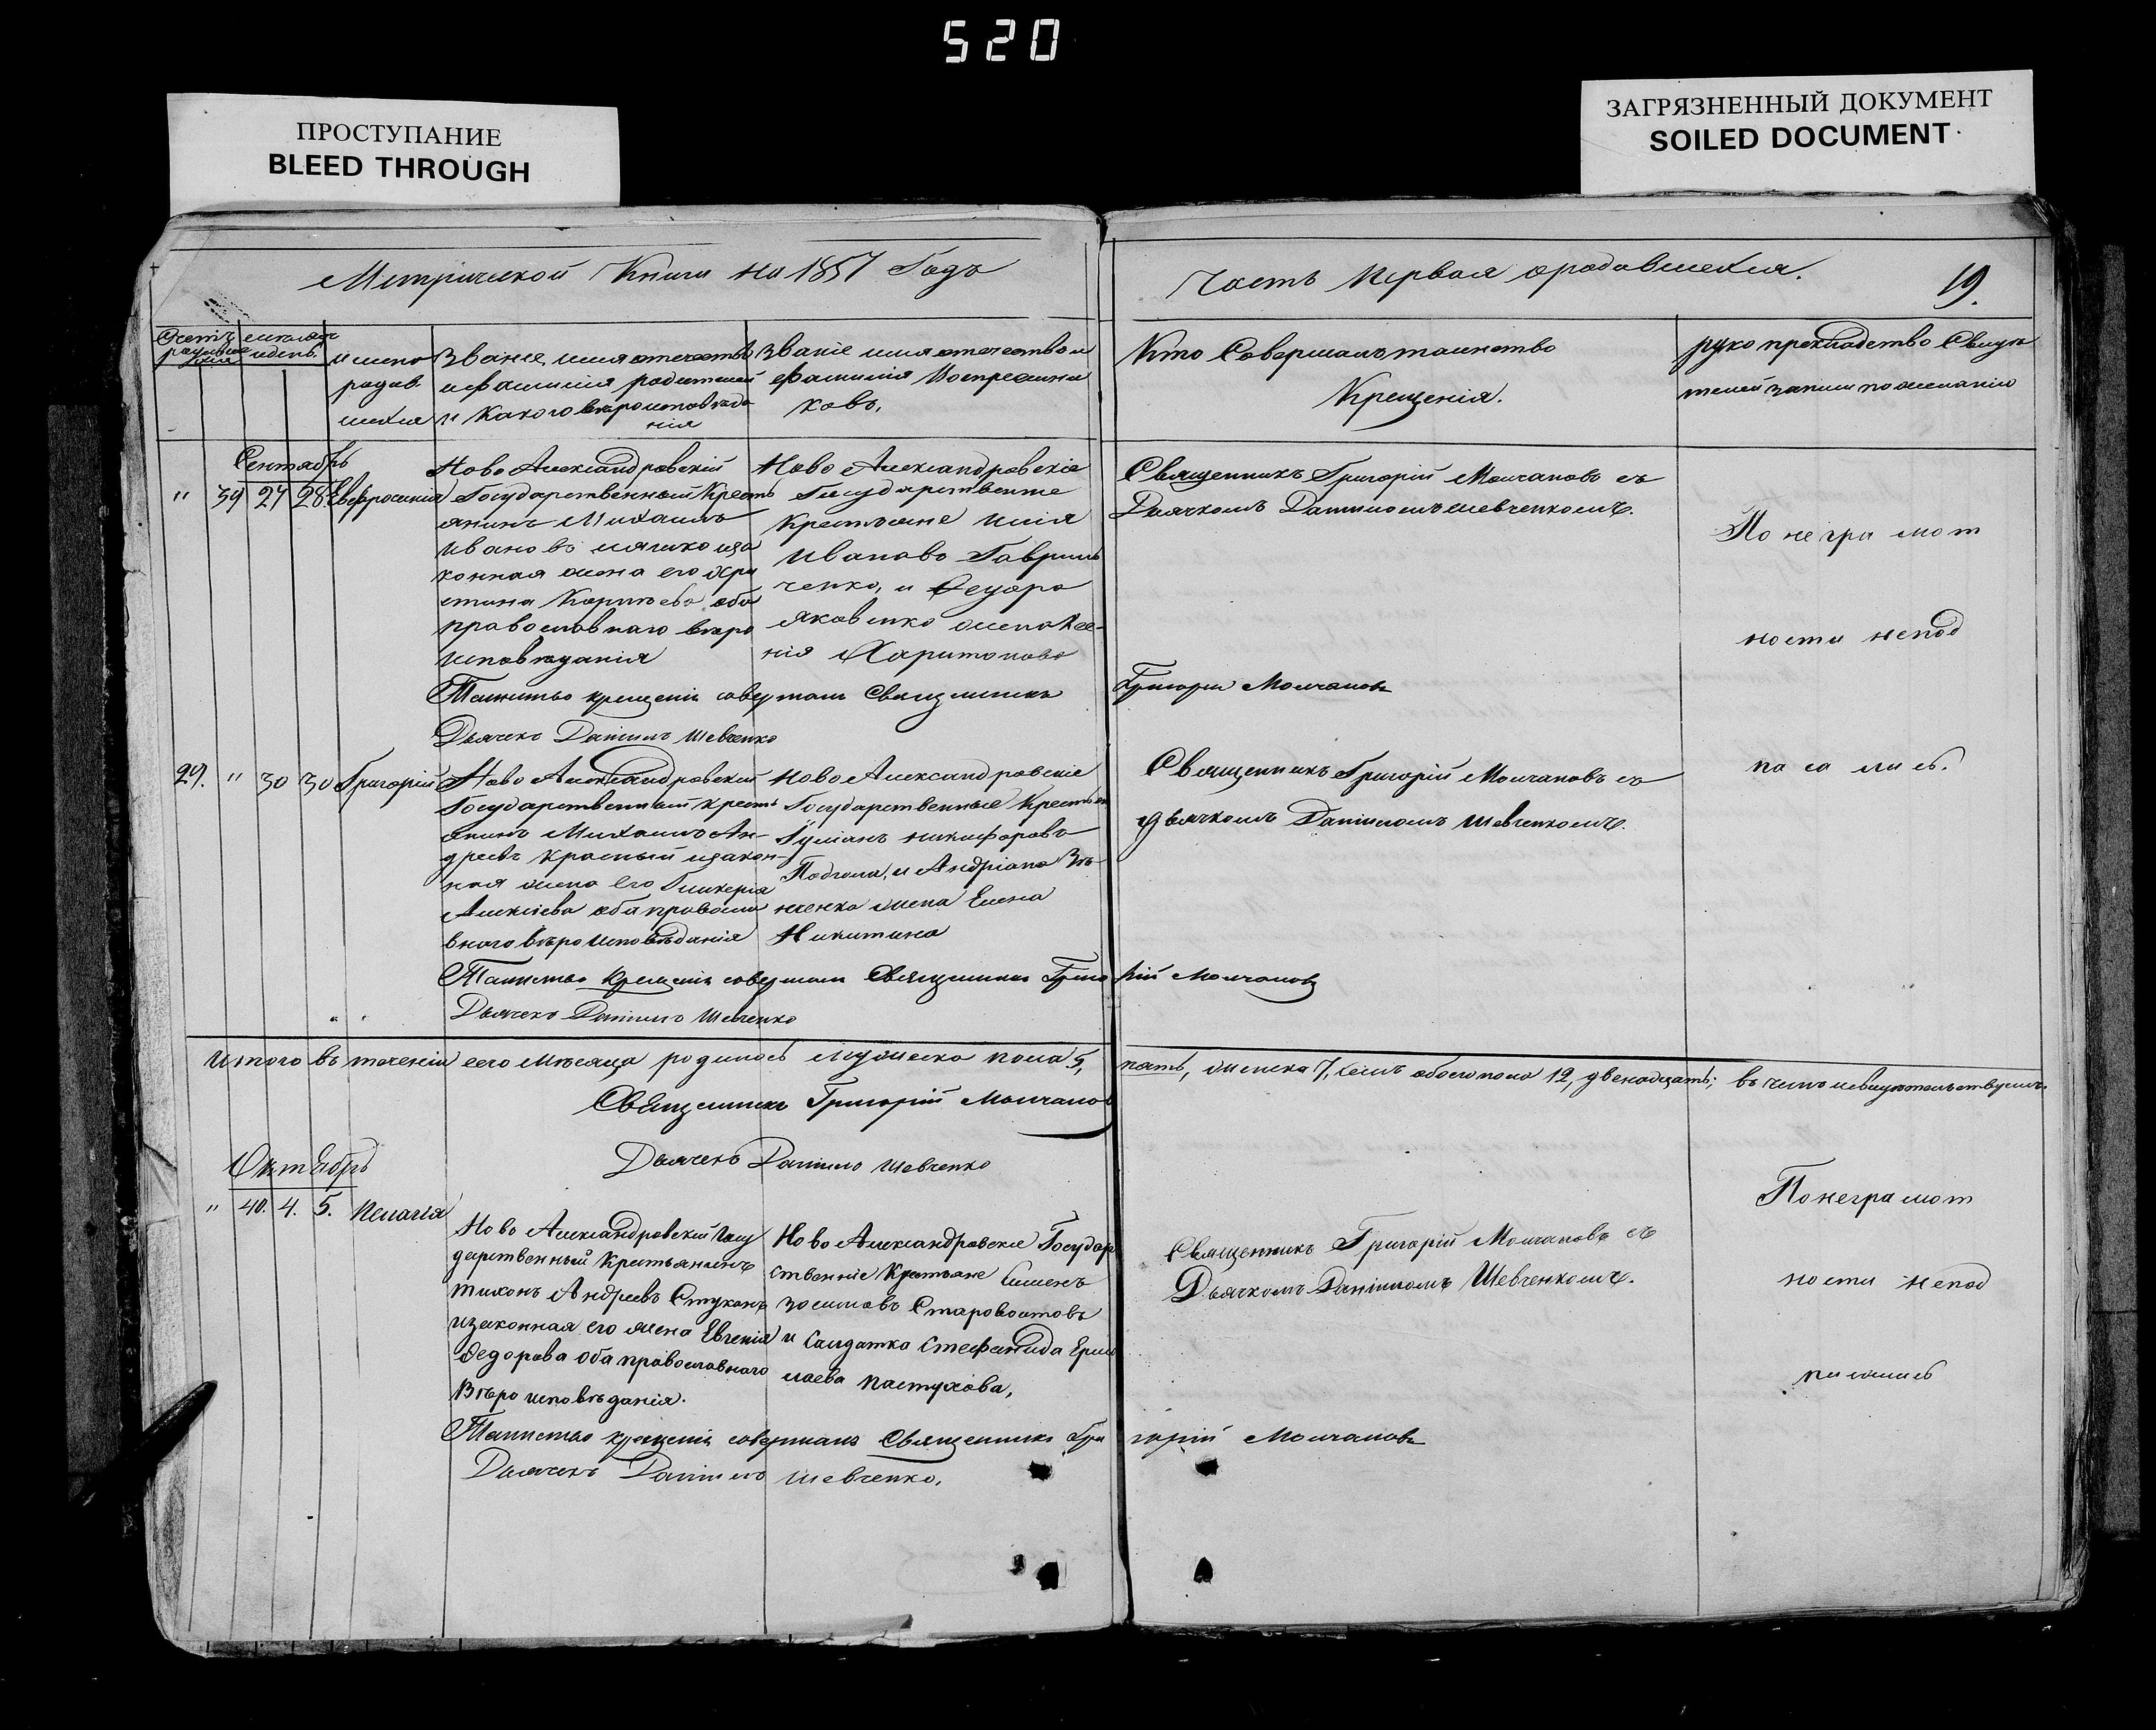 520
ПРОСТУПАНИЕ
BLEED THROUGH
ЗАГРЯЗНЕННЫЙ ДОКУМЕНТ
SOILED DOCUMENT
Метрической Книги на 1857 Годъ
Часть Первая о родавшихся.
19.
имена
родав
шихся
Званіе, имя отечество
и фамилія родителей
и Какого вероисповѣда
нія
Званіе имя отечество и
Фамилія Воспреемни
ковъ.
Кто Совершалъ таинство
Крещенія.
Сентябрь
" 39 27 28 Евфросинія
Ново Александровскій
Государственный Кресть
янинъ Михаилъ
Ивановъ
конная жена его Хри
стина оба
православнаго веро
исповѣданія
Ново Александровскіе
Государственые
Крестьяне Илія
Ивановъ Гаврил
ченко, и Федора
Яковенко жена Ксе-
нія Харитонова
Священникъ Григорій Молчановъ съ
Дьячкомъ Даніиломъ Шевченкомъ.
По неграмот
ности непод
писались.
Таинство крещенія совершалъ Священникъ Григорій Молчановъ
Дьячекъ Даніилъ Шевченко
29. " 30 30 Григорій
Ново Александровскій
Государственный Кресть
янинъ Михаилъ Ан-
дреевъ Красный изакон-
ная жена его Гликерія
Алексіева оба правосла
внаго вѣро исповѣданія
Ново Александровскіе
Государственные Крестьяне
Никифоровъ
и Андріана
жена Елена
Никитина
Священникъ Григорій Молчановъ съ
дьячкомъ Даніиломъ Шевченкомъ.
Таинство крещенія совершалъ Священникъ Григорій Молчановъ
Дьячекъ Даніилъ Шевченко
Итого въ теченіи сего Мѣсяца родилось мужеска пола 5, пять, женска 7, семь обоего пола 12, двенадцать; въ чемъ исвидѣтельствуемъ.
Священникъ Григорій Молчановъ
Дьячекъ Даніилъ Шевченко
Октябрь
" 40. 4. 5. Пелагія
Ново Александровскій Госу
дарственный Крестьянинъ
Тихонъ Андреевъ Стуканъ
изаконная его жена Евгенія
Федорова оба православнаго
Вѣро исповѣданія.
Ново Александровскіе Государ
ственніе Крестьяне Сименъ
Зосимовъ Старовоитовъ
и Салдатка Стефанида Ермо
лаева Пастухова,
Священникъ Григорій Молчановъ съ
Дьячкомъ Даніиломъ Шевченкомъ.
Понеграмот
ности непод
писались
Таинство крещенія совершалъ Священникъ Григорій Молчановъ
Дьячекъ Даніилъ Шевченко.